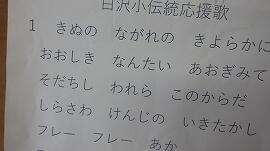 白沢小伝統応援歌
1 きぬの ながれの きよらかに
おおしき なんたい あおぎみて
そだちし われら このからだ
しらさわ けんじの いきたかし
フレー フレー あか